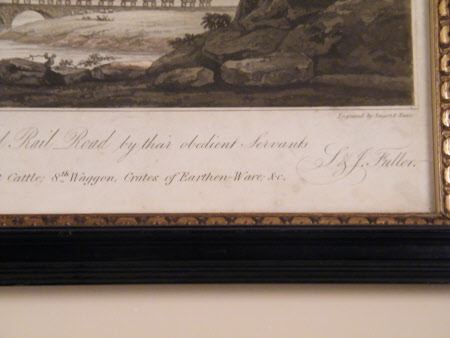 Engraved by Smart & Hunt
Rail Road by their obedient Servants
S & J. Fuller.
Cattle; 8th Waggon, Crates of Earthen-Ware; &c.